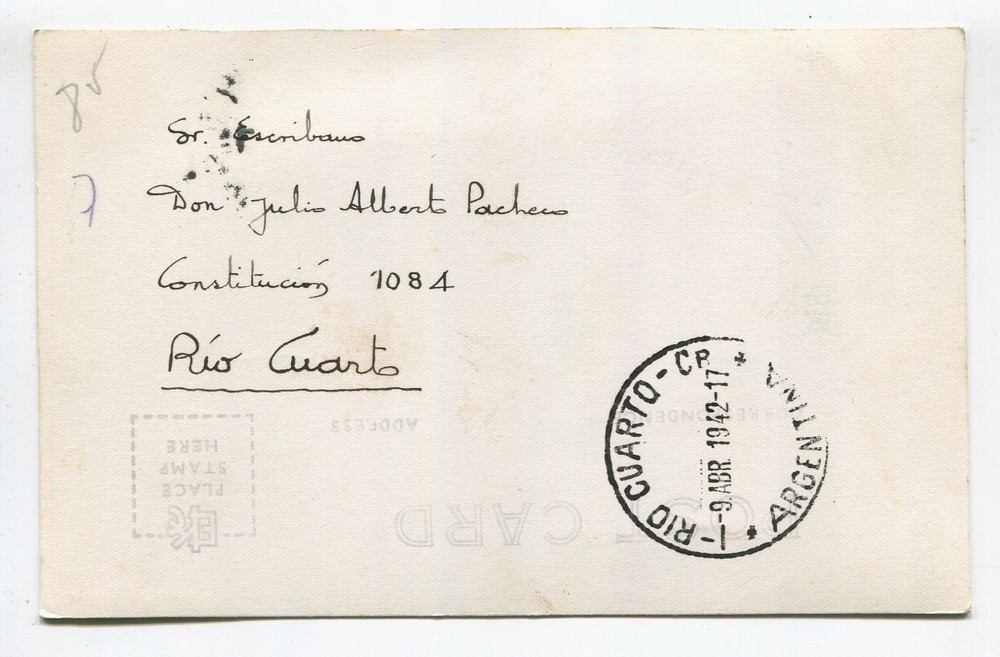 85
7
Sr. Escribano
Don Julio Alberto Pacheco
Constitución 1084
Río Cuarto
1-RIO CUARTO-CB. * ARGENTINA *
-9 ABR. 1942-17
CORRESPONDENCE
ADDRESS
PLACE
STAMP
HERE
POST CARD